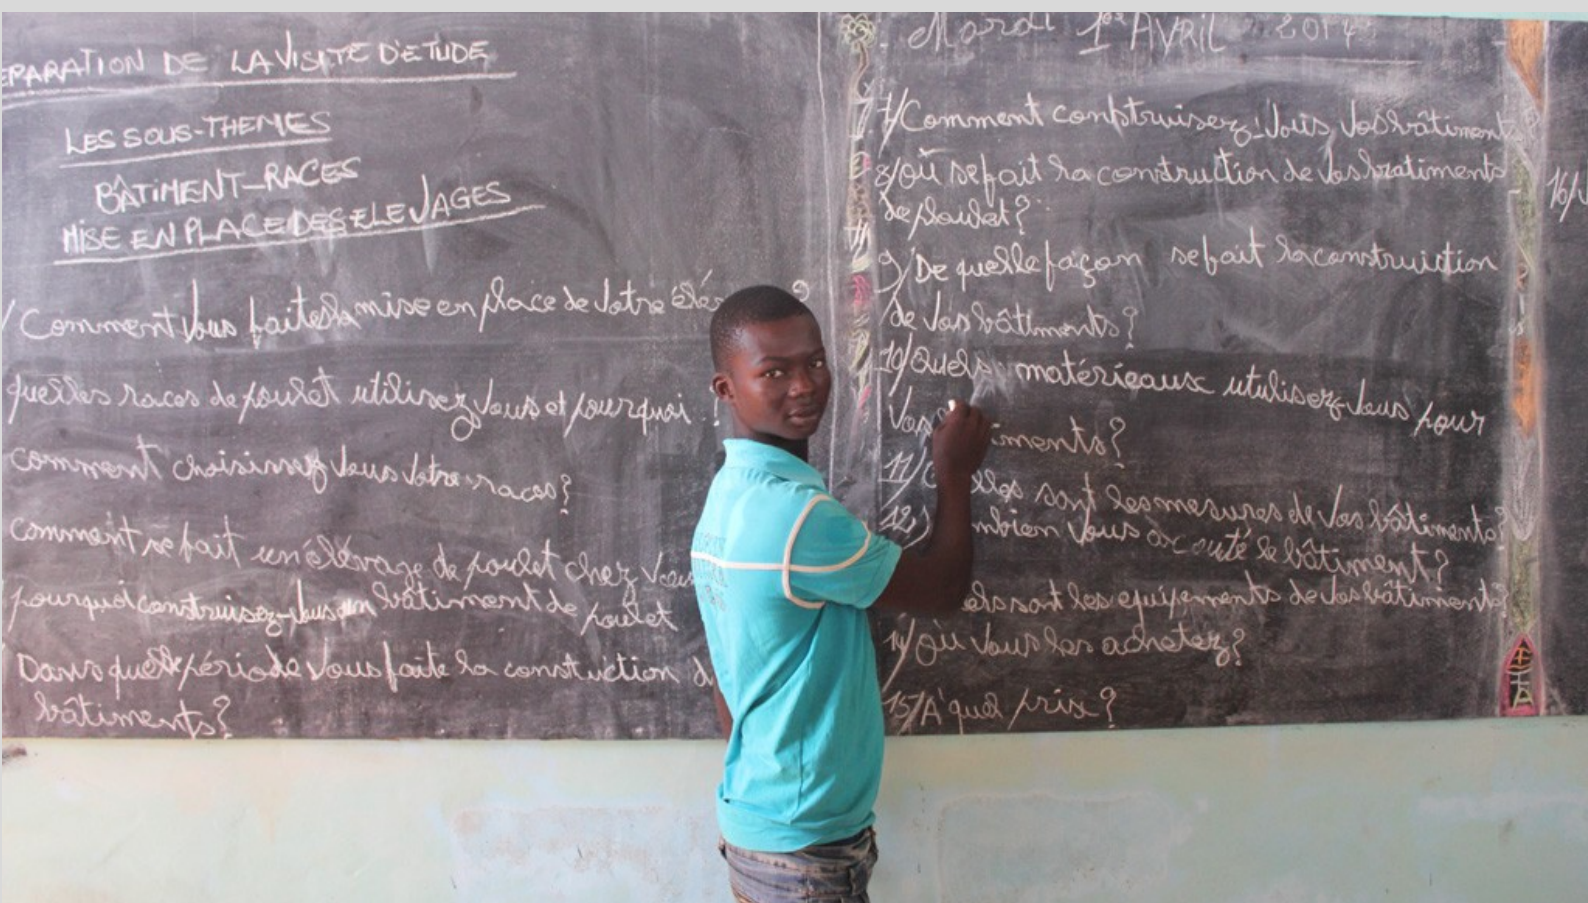 EPARATION DE LA VISITE D'ETUDE
LES SOUS-THEMES
BÂTIMENT-RACES
MISE EN PLACE DES ELEVAGES
/ Comment vous faites la mise en place de votre élé ?
quelles races de poulet utilisez vous et pourquoi ?
comment choisissez vous votre races?
comment se fait un élévage de poulet chez vous
pourquoi construisez-vous un bâtiment de poulet
Dans quelle période vous faite la constuction d
bâtiments?
Mardi 1er AVRIL 2014
7/ Comment construisez-vous vos bâtiments?
8/ Où se fait la construction de vos batiments
de poulet?
9/ De quelle façon se fait la construiction
de vos bâtiments?
10/ Quels matérieaux utulisez-vous pour
vos iments?
11/ elles sont les mesures de vos bâtiments?
12/ mbien vous à couté le bâtiment?
els sont les equipements de vos bâtiments?
14/ Où vous les achetez?
15/ A quel prix?
16/